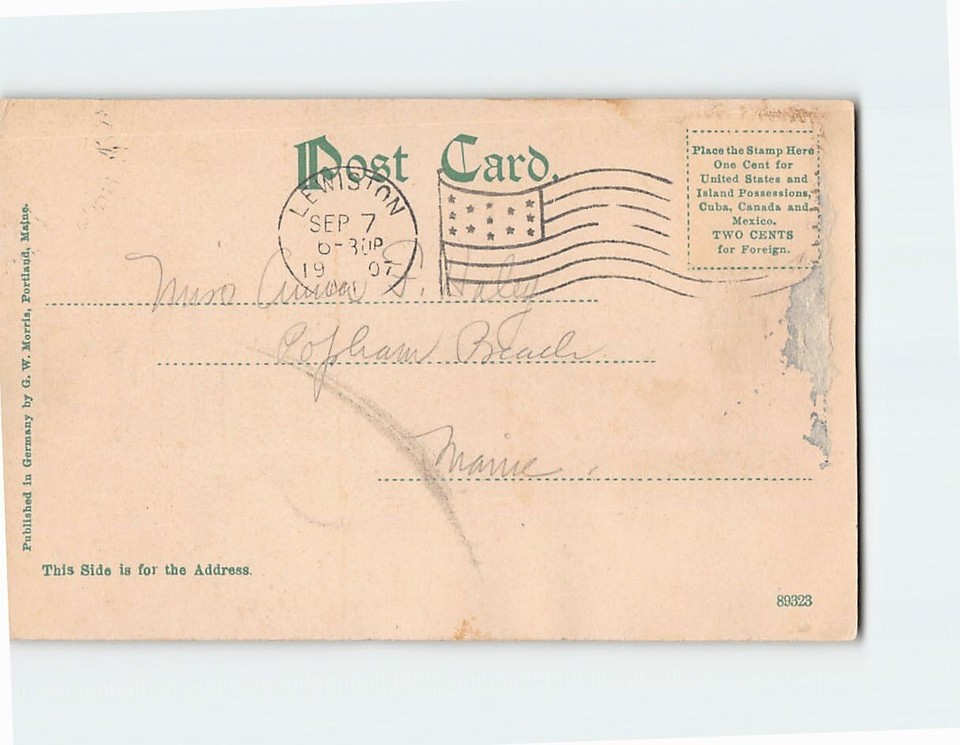 Post Card.
LEWISTON
SEP 7
6-30P
19 07
Place the Stamp Here
One Cent for
United States and
Island Possessions,
Cuba, Canada and
Mexico.
TWO CENTS
for Foreign.
Miss Anna F. Haley
Popham Beach
Maine.
Published in Germany by G. W. Morris, Portland, Maine.
This Side is for the Address.
89323